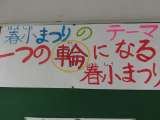 春小まつりの テーマ
一つの輪になる
春小まつり